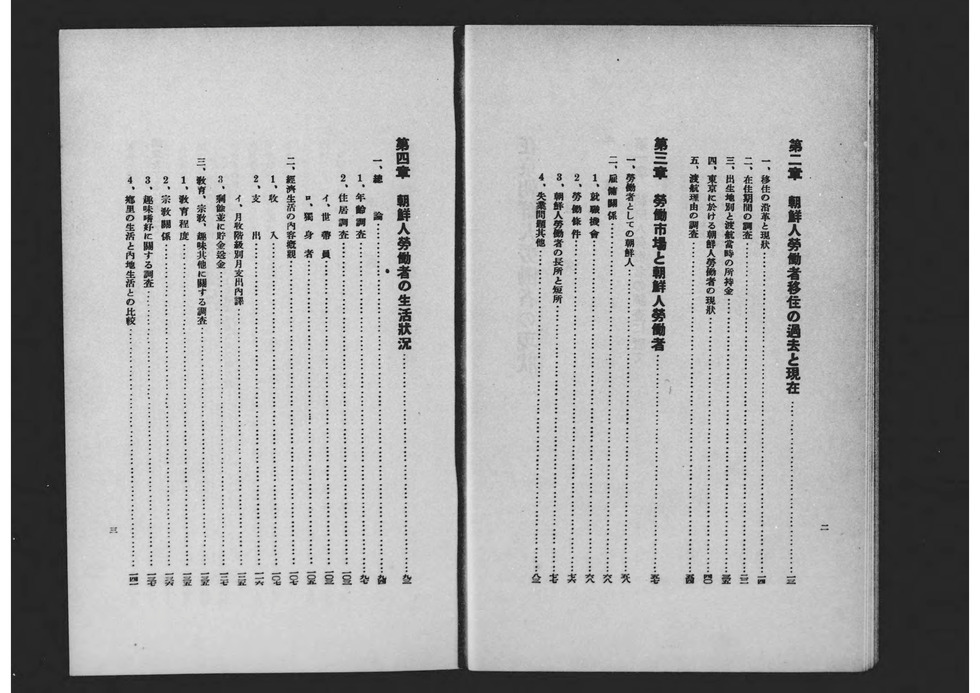 第二章　朝鮮人勞働者移住の過去と現在……一三
一、移住の沿革と現狀……一四
二、在住期間の調査……二二
三、出生地別と渡航當時の所持金……三五
四、東京に於ける朝鮮人勞働者の現狀……四〇
五、渡航理由の調査……
第三章　勞働市場と朝鮮人勞働者……
一、勞働者としての朝鮮人……
二、雇傭關係……六八
1、就職機會……六八
2、勞働條件……
3、朝鮮人勞働者の長所と短所……
4、失業問題其他……八二
二
第四章　朝鮮人勞働者の生活狀況……
一、總論……
1、年齡調査……九七
2、住居調査……一〇三
イ、世帶員……一〇三
ロ、獨身者……一〇五
二、經濟生活の內容槪觀……一〇七
1、收入……一〇七
2、支出……一一六
イ、月收階級別月支出內譯……一二五
3、剩餘並に貯金送金……一二七
三、敎育、宗敎、趣味其他に關する調査……一三五
1、敎育程度……一三五
2、宗敎關係……一三六
3、趣味嗜好に關する調査……一三七
4、鄕里の生活と內地生活との比較……一四一
三